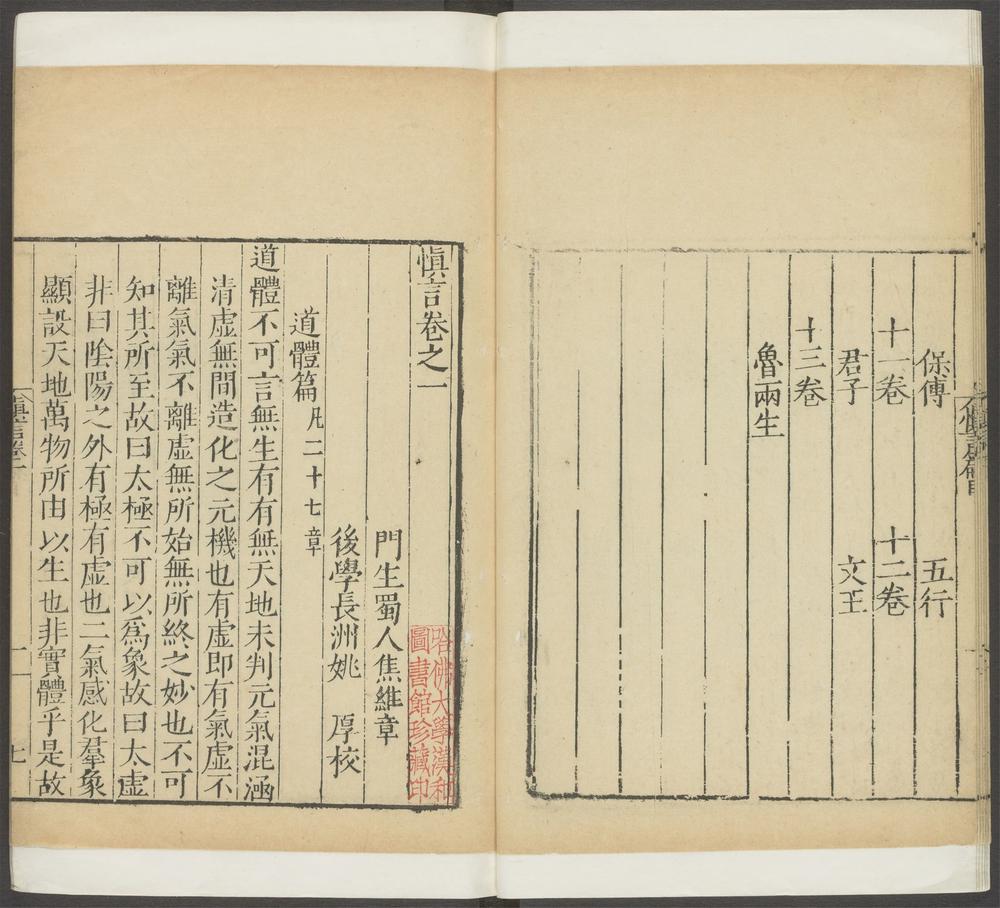 保傅 五行
十一卷 十二卷
君子 文王
十三卷
魯兩生
慎言卷之一
門生蜀人焦維章
後學長洲姚 厚校
道體篇凡二十七章
道體不可言無生有有無天地未判元氣混涵
清虛無間造化之元機也有虛即有氣虛不
離氣氣不離虛無所始無所終之妙也不可
知其所至故曰太極不可以為象故曰太虛
非曰陰陽之外有極有虛也二氣感化羣象
顯設天地萬物所由以生也非實體乎是故
哈佛大學漢和
圖書館珍藏印
慎言卷一
七